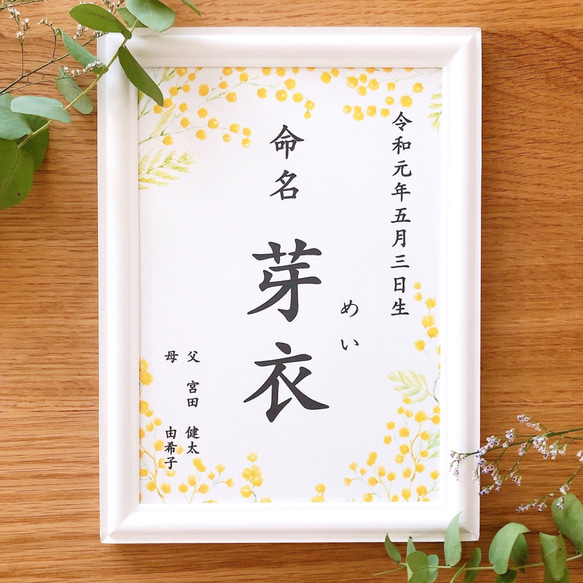 令和元年五月三日生
命名
芽衣
めい
父 宮田 健太
母 由希子